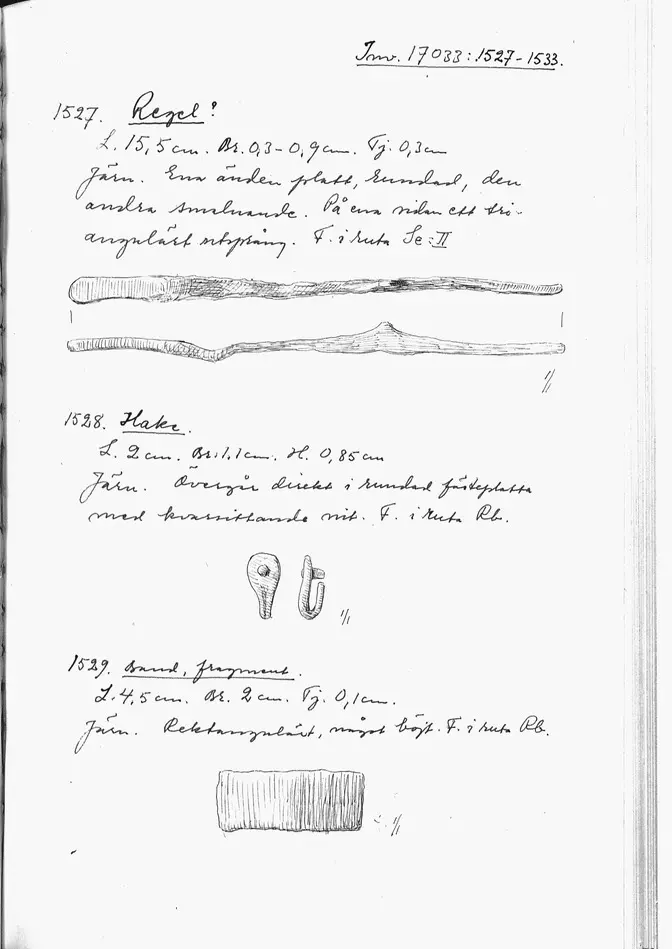 Inv. 17033:1527-1533.
1527. Regel?
L. 15,5 cm. Br. 0,3-0,9 cm. Tj. 0,3 cm
Järn. Ena änden platt, rundad, den
andra smalnande. På ena sidan ett tri-
angulärt utsprång. F. i ruta Se:II
1/1
1528. Hake.
L. 2 cm. Br. 1,1 cm. H. 0,85 cm
Järn. Övergår direkt i rundad fästeplatta
med kvarsittande nit. F. i ruta Rb.
1/1
1529. Band, fragment.
L. 4,5 cm. Br. 2 cm. Tj. 0,1 cm.
Järn. Rektangulärt, något böjt. F. i ruta Rb.
1/1